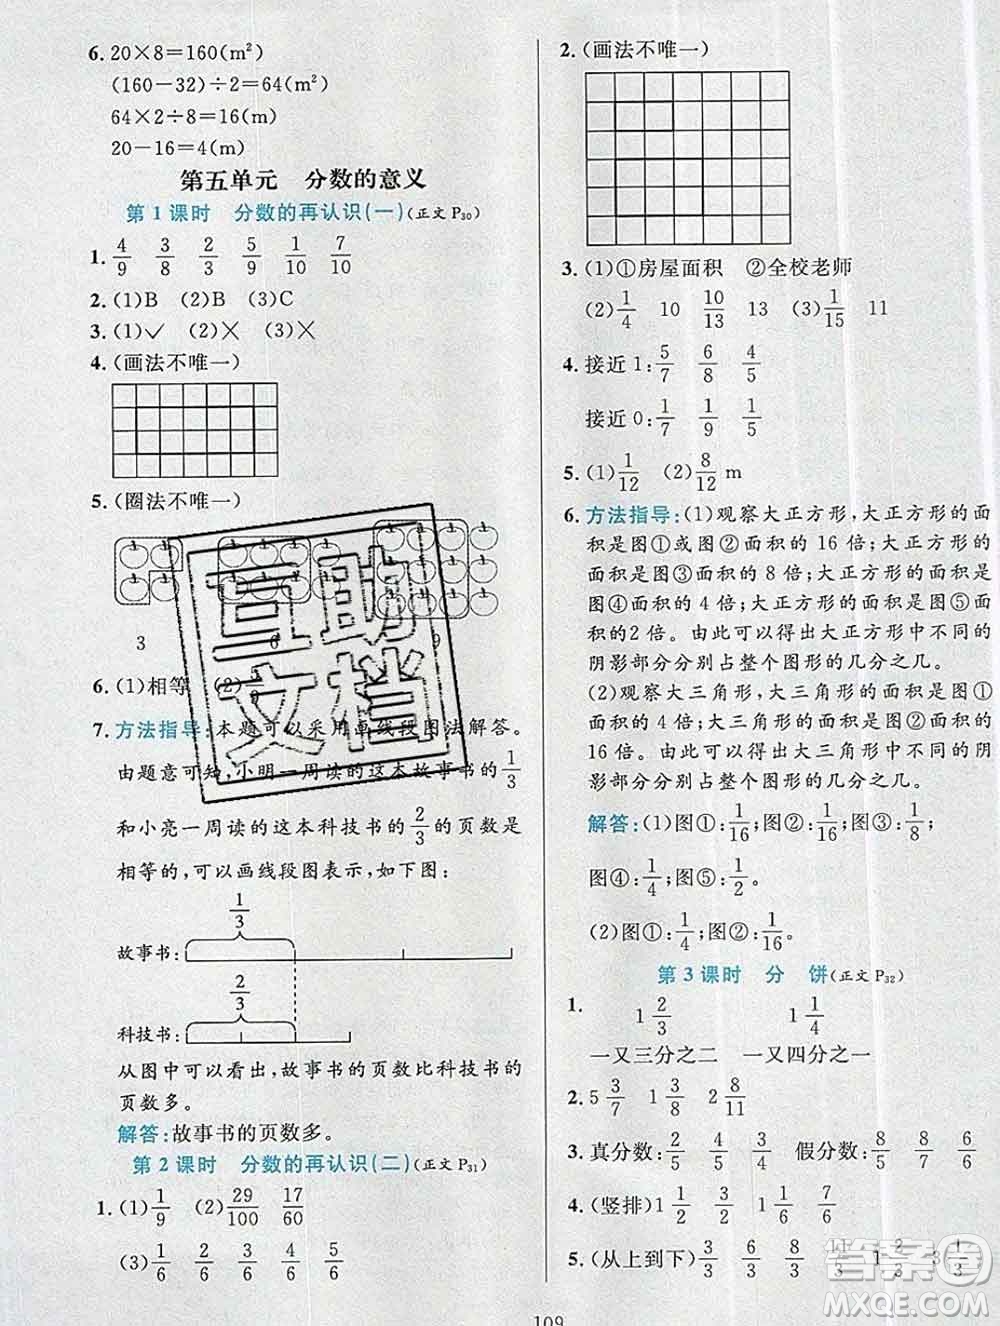 6. 20×8=160(m²)
(160-32)÷2=64(m²)
64×2÷8=16(m)
20-16=4(m)
第五单元 分数的意义
第1课时 分数的再认识(一)(正文 P30)
1. 4/9 3/8 2/3 5/9 1/10 7/10
2. (1)B (2)B (3)C
3. (1)✓ (2)× (3)×
4. (画法不唯一)
5. (圈法不唯一)
3 6 9
6. (1)相等 (2)
7. 方法指导:本题可以采用画线段图法解答。
由题意可知,小明一周读的这本故事书的1/3
和小亮一周读的这本科技书的2/3的页数是
相等的,可以画线段图表示,如下图:
1/3
故事书:
2/3
科技书:
从图中可以看出,故事书的页数比科技书的
页数多。
解答:故事书的页数多。
第2课时 分数的再认识(二)(正文 P31)
1. (1)1/9 (2)29/100 17/60
(3)1/6 2/6 3/6 4/6 5/6
2. (画法不唯一)
3. (1)①房屋面积 ②全校老师
(2)1/4 10 10/13 13 (3)1/15 11
4. 接近1:5/7 6/8 4/5
接近0:1/7 1/9 1/5
5. (1)1/12 (2)8/12 m
6. 方法指导:(1)观察大正方形,大正方形的面
积是图①或图②面积的 16 倍;大正方形的
面积是图③面积的 8 倍;大正方形的面积是
图④面积的 4 倍;大正方形的面积是图⑤面
积的2 倍。由此可以得出大正方形中不同的
阴影部分分别占整个图形的几分之几。
(2)观察大三角形,大三角形的面积是图①
面积的 4 倍,大三角形的面积是图②面积的
16 倍。由此可以得出大三角形中不同的阴
影部分分别占整个图形的几分之几。
解答:(1)图①:1/16;图②:1/16;图③:1/8;
图④:1/4;图⑤:1/2。
(2)图①:1/4;图②:1/16。
第3课时 分 饼(正文 P32)
1. 1 2/3 1 1/4
一又三分之二 一又四分之一
2. 5 3/7 1 3/8 2 8/11
3. 真分数:2/5 4/5 2/6 假分数:8/5 8/8 6/6
4. (竖排)1 1/2 3/2 1 1/6 7/6
5. (从上到下)3/3 6/3 8/3 1 2/3 3 1/3
109
互助
文档
答案圈
MXQE.COM